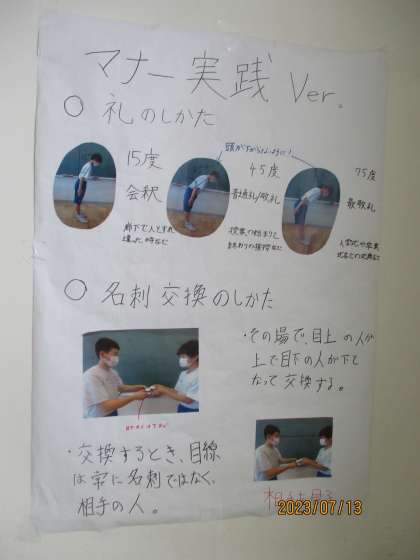 マナー実践 Ver.
○ 礼のしかた
頭が下がらないように!
15度
会釈
廊下で人とすれ
違った時など
45度
普通礼/敬礼
授業の始まりと
終わりの挨拶など
75度
最敬礼
入学式や卒業
式などの式典など
○ 名刺交換のしかた
・その場で、目上の人が
上で目下の人が下と
なって交換する。
・交換するとき、目線
は常に名刺ではなく、
相手の人。
相手を見る
2023/07/13